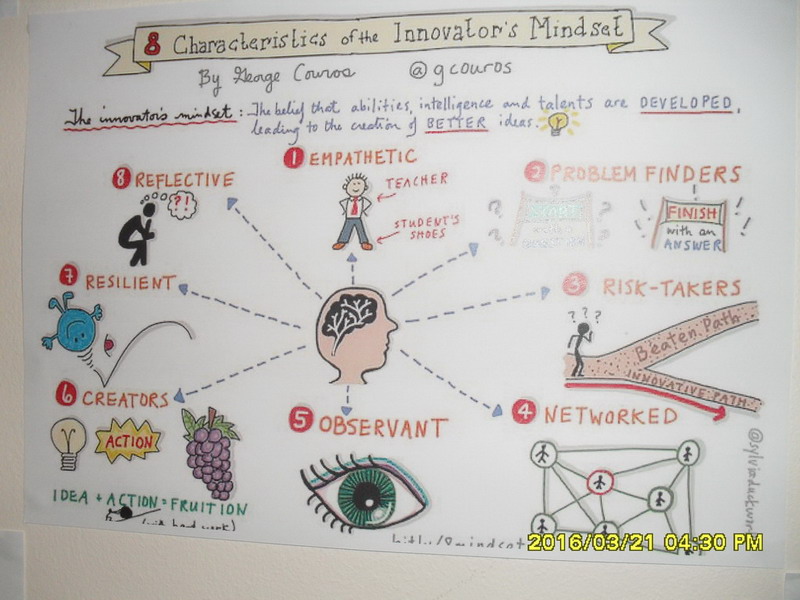 8 Characteristics of the Innovator's Mindset
By George Couros @gcouros
The innovator's mindset: The belief that abilities, intelligence and talents are DEVELOPED,
leading to the creation of BETTER ideas.
1 EMPATHETIC
TEACHER
STUDENT'S
SHOES
2 PROBLEM FINDERS
? ? ? ?
START
with a
QUESTION
! ! ! !
FINISH
with an
ANSWER
3 RISK-TAKERS
? ? ?
Beaten Path
INNOVATIVE PATH
4 NETWORKED
5 OBSERVANT
6 CREATORS
ACTION
IDEA + ACTION = FRUITION
(with hard work)
7 RESILIENT
8 REFLECTIVE
?!
@sylviaduckwor
2016/03/21 04:30 PM